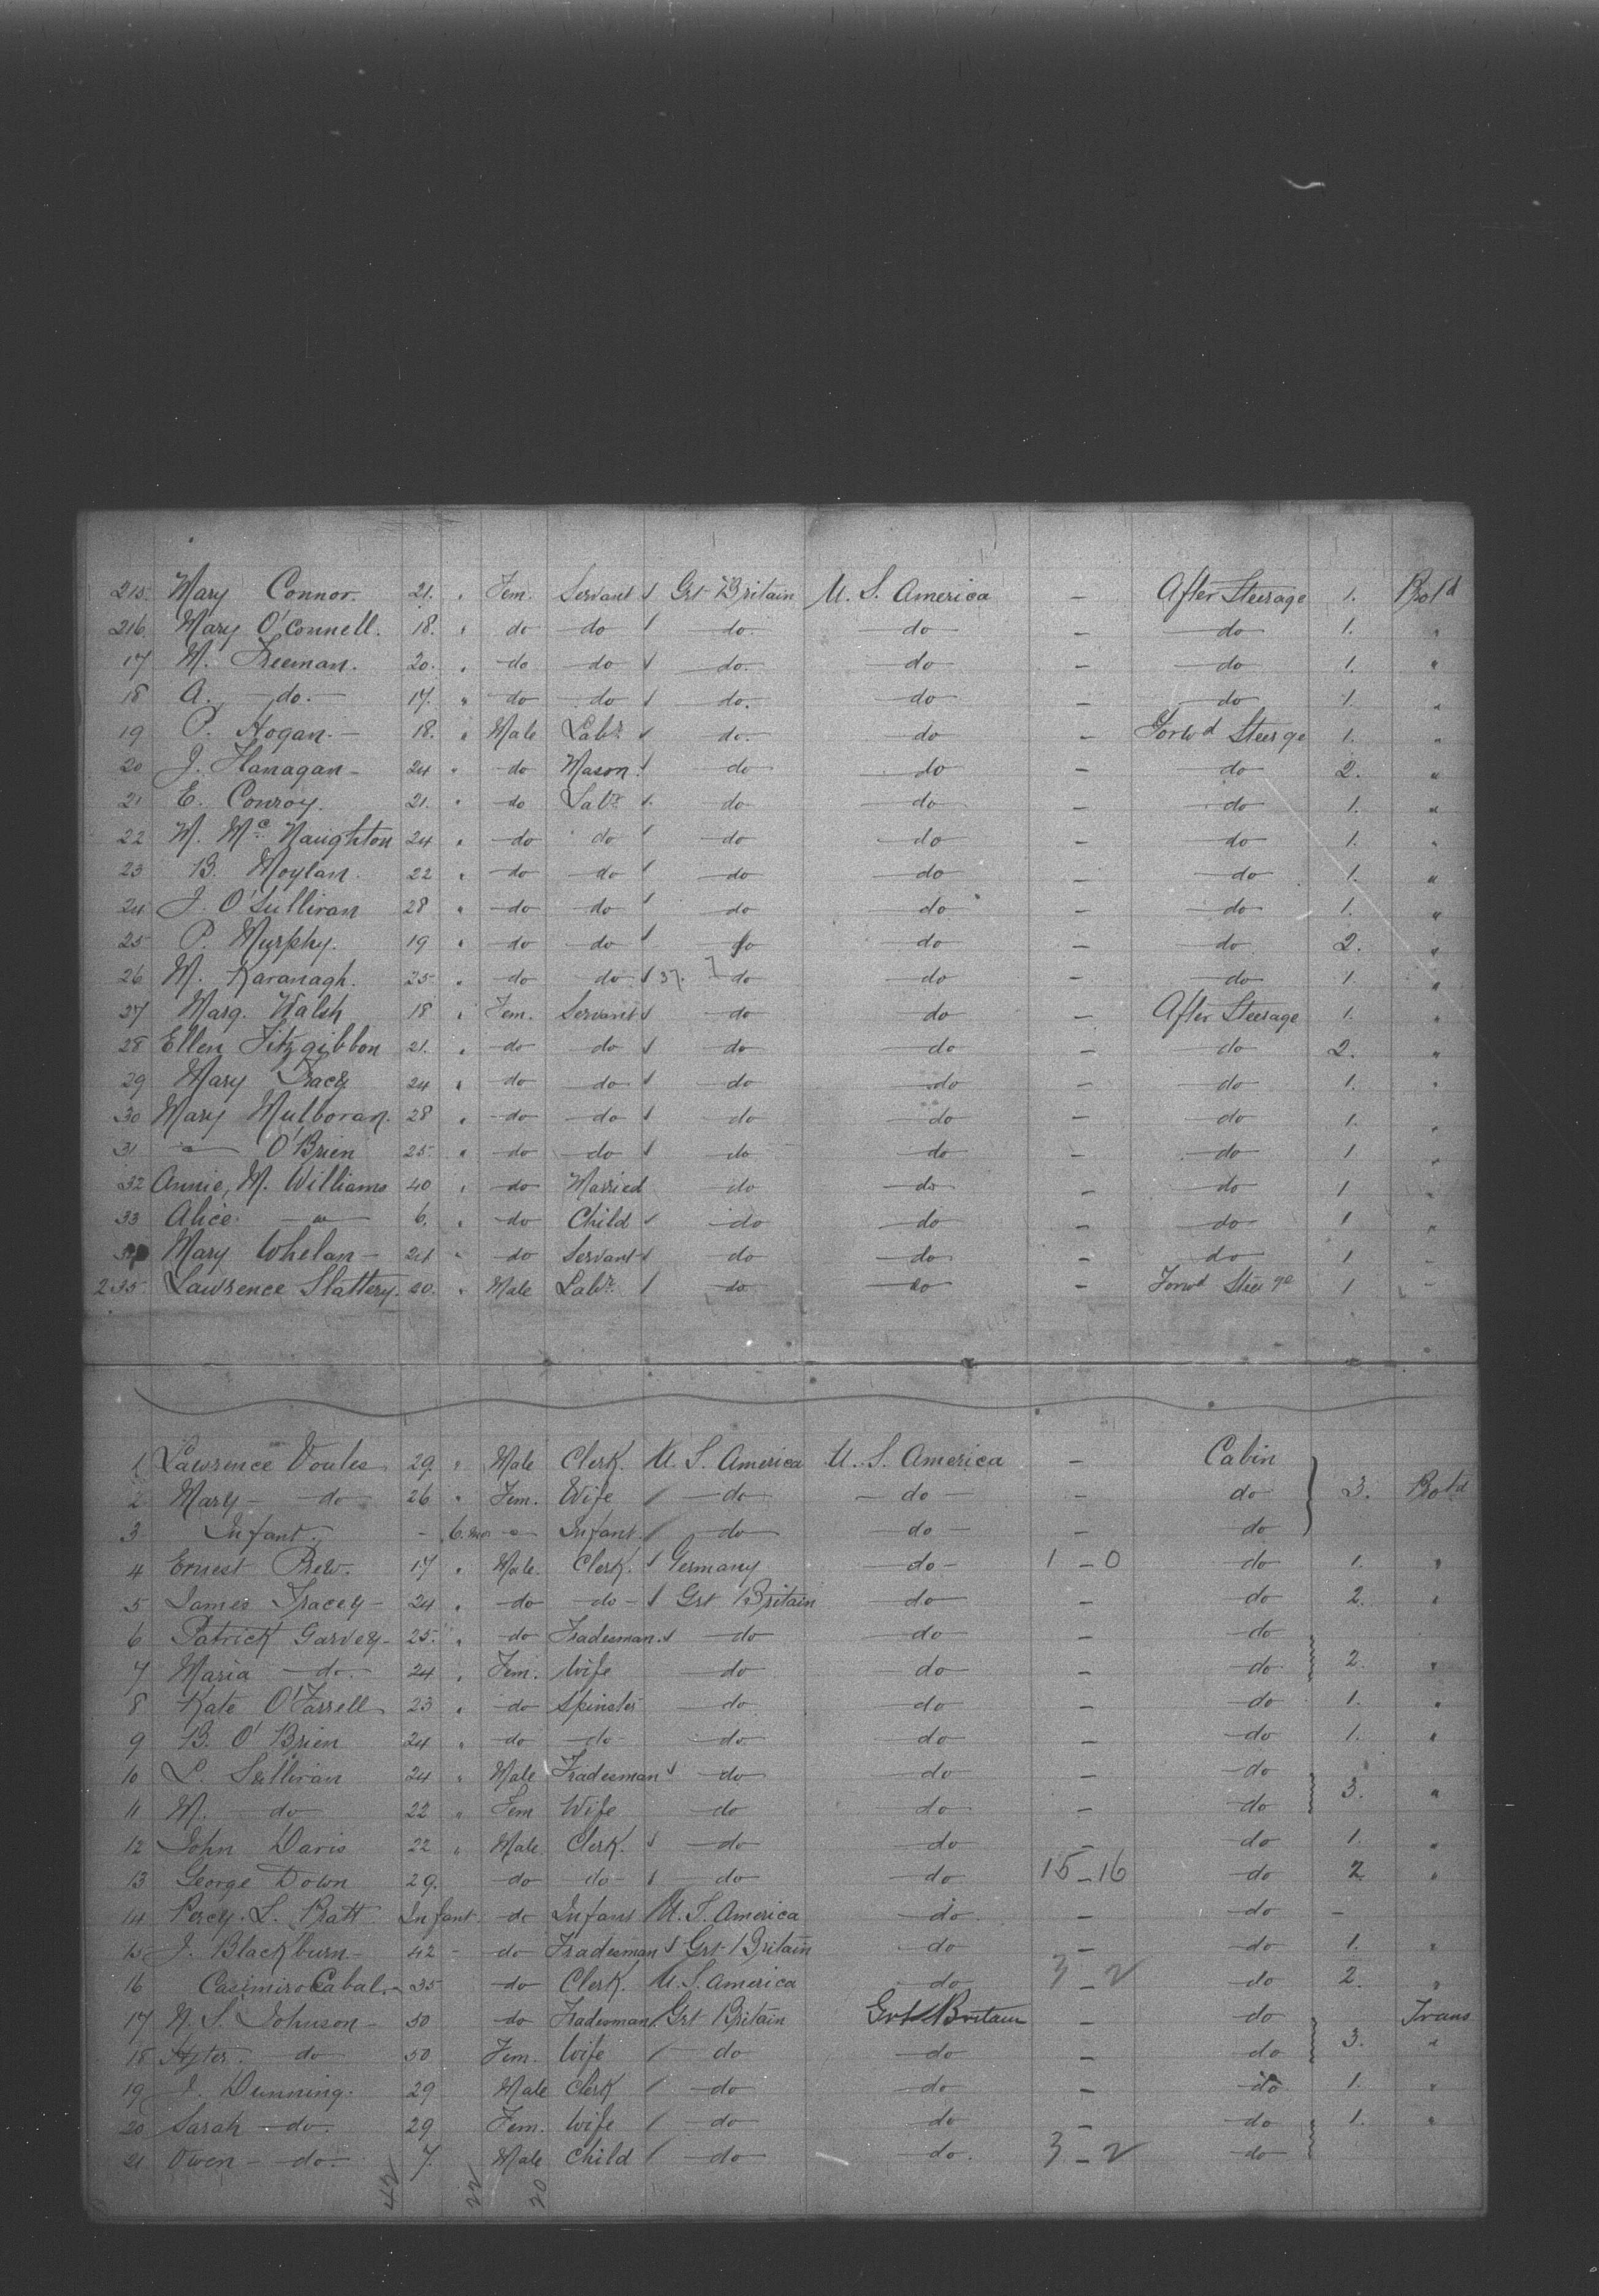 215. Mary Connor. 21. " Fem. Servant Grt Britain U. S. America - After Steerage 1. Prot'd
216. Mary O'Connell. 18. " do do do. do - do 1. "
17 M. Freeman. 20. " do do do. do - do 1. "
18 A. do. 17. " do do do. do - do 1. "
19 P. Hogan. 18. " Male Labr. do. do - Forwd Steerge 1. "
20 J. Flanagan 24 " do Mason do do - do 2. "
21 E. Conroy. 21. " do Labr do do - do 1. "
22 M. McNaughton 24 " do do do do - do 1. "
23 B. Moylan. 22 " do do do do - do 1. "
24 J. O'Sullivan 28 " do do do do - do 1. "
25 P. Murphy. 19 " do do do do - do 2. "
26 M. Kavanagh. 25 " do do 37. do do - do 1. "
27 Marg. Walsh 18 " Fem. Servant do do - After Steerage 1. "
28 Ellen Fitzgibbon 21. " do do do do - do 2. "
29 Mary Tracey 24 " do do do do - do 1. "
30 Mary Mulboran. 28 " do do do do - do 1. "
31 " O'Brien 25 " do do do do - do 1 "
32 Annie, M. Williams 40 " do Married do do - do 1 "
33 Alice. " 6. " do Child do do - do 1 "
34 Mary Whelan 24 " do Servant do do - do 1 "
235 Lawrence Slattery. 20. " Male Labr. do do - Forwd Steerge 1 "
1 Lawrence Voules 29. " Male Clerk. U. S. America U. S. America - Cabin
2 Mary do 26 " Fem. Wife do do - do 3. Prot'd
3 Infant. - 6 mos " Infant. do do - do
4 Ernest Prew. 17 " Male. Clerk. Germany do 1 - 0 do 1. "
5 James Tracey 24 " do do Grt Britain do - do 2. "
6 Patrick Garvey 25. " do Tradesman. do do - do
7 Maria do. 24 " Fem. Wife do do - do 2. "
8 Kate O'Farrell 23 " do Spinster do do - do 1. "
9 B. O'Brien 24 " do do do do - do 1. "
10 L. Sullivan 24 " Male Tradesman do do - do
11 M. do 22 " Fem Wife do do - do 3. "
12 John Davis 22 " Male Clerk. do do - do 1. "
13 George Down 29. do do do do 15 - 16 do 2 "
14 Percy. S. Pratt Infant do Infant U. S. America do - do -
15 J. Blackburn 42 - do Tradesman Grt Britain do - do 1. "
16 Casimiro Cabal. 35 do Clerk. U. S. America do 3 - 2 do 2. "
17 N. S. Johnson 50 do Tradesman Grt Britain Grt Britain - do Trans
18 do 50 Fem. Wife do do - do 3. "
19 J. Dunning. 29 Male Clerk do do - do 1. "
20 Sarah do. 29 Fem. Wife do do - do 1. "
21 Owen do. 7. Male Child do do. 3 - 2 do
42 22 20